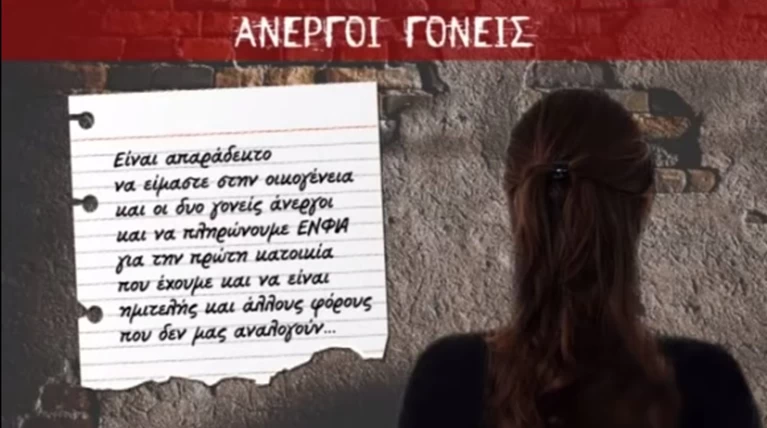 ΑΝΕΡΓΟΙ ΓΟΝΕΙΣ
Είναι απαράδεκτο
να είμαστε στην οικογένεια
και οι δυο γονείς άνεργοι
και να πληρώνουμε ΕΝΦΙΑ
για την πρώτη κατοικία
που έχουμε και να είναι
ημιτελής και άλλους φόρους
που δεν μας αναλογούν...